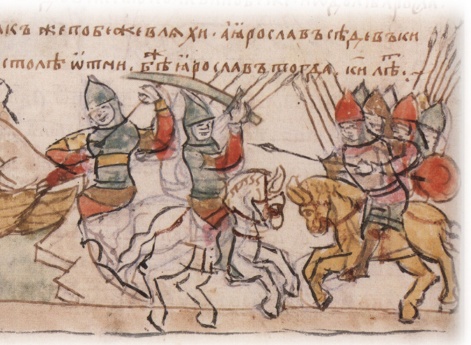 акъ жепобежевлѧхи · аꙗрославъсѣдевъки
столѣ ѿтни · бѣⷤ ꙗрославъ тогда · к҃и лѣⷮ ·